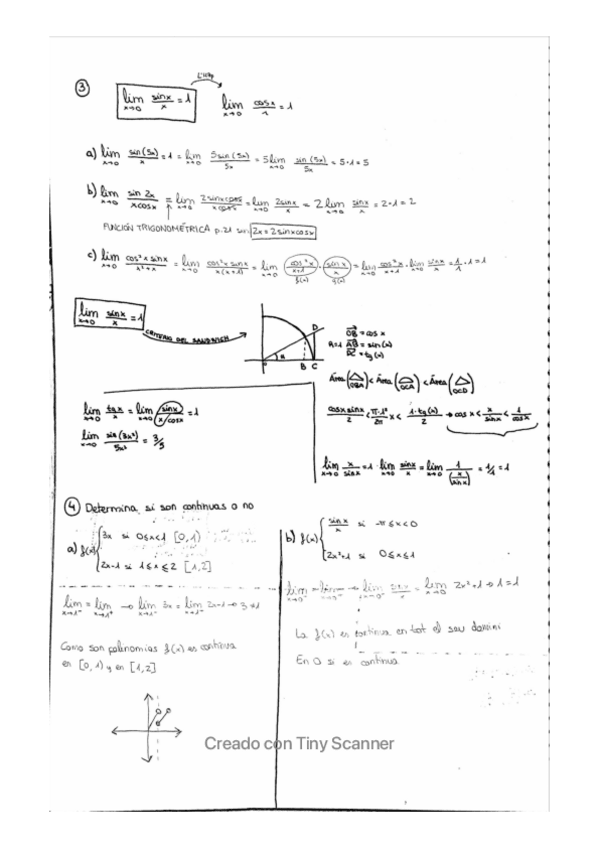 ③ lim x→0 sinx/x = 1   L'Hôp   lim x→0 cosx/1 = 1
a) lim x→0 sin(5x)/x = 1 = lim x→0 5sin(5x)/5x = 5 lim x→0 sin(5x)/5x = 5·1 = 5
b) lim x→0 sin 2x/xcosx = lim x→0 2sinxcosx/xcosx = lim x→0 2sinx/x = 2 lim x→0 sinx/x = 2·1 = 2
FUNCIÓN TRIGONOMÉTRICA p.21 sin 2x = 2sinxcosx
c) lim x→0 cos²x sinx/x²+x = lim x→0 cos²x sinx/x(x+1) = lim x→0 cos²x/x+1 · sinx/x = lim x→0 cos²x/x+1 · lim x→0 sinx/x = 1/1 · 1 = 1
f(x) g(x)
lim x→0 sinx/x = 1
CRITERIO DEL SANDWICH
D
B C
R=1
OB = cos x
AB = sin(x)
DC = tg(x)
Área (OBA) < Área (OCA) < Área (OCD)
cosx sinx/2 < π·1²/2π x < 1·tg(x)/2 → cosx < x/sinx < 1/cosx
lim x→0 tgx/x = lim x→0 sinx/x cosx = 1
lim x→0 sin(3x²)/5x² = 3/5
lim x→0 x/sinx = 1 · lim x→0 sinx/x = lim x→0 1/(x/sinx) = 1/1 = 1
④ Determina si son continuas o no
a) f(x) { 3x si 0≤x<1 [0,1)
2x-1 si 1≤x≤2 [1,2]
b) f(x) { sinx/x si -π≤x<0
2x²+1 si 0≤x≤1
lim x→1⁻ = lim x→1⁺ → lim x→1⁻ 3x = lim x→1⁺ 2x-1 → 3≠1
lim x→0⁻ = lim x→0⁺ → lim x→0⁻ sinx/x = lim x→0⁺ 2x²+1 → 1=1
Como son polinomios f(x) es continua
en [0,1) y en [1,2]
La f(x) es contínua en tot el seu domini
En 0 si es continua
Creado con Tiny Scanner